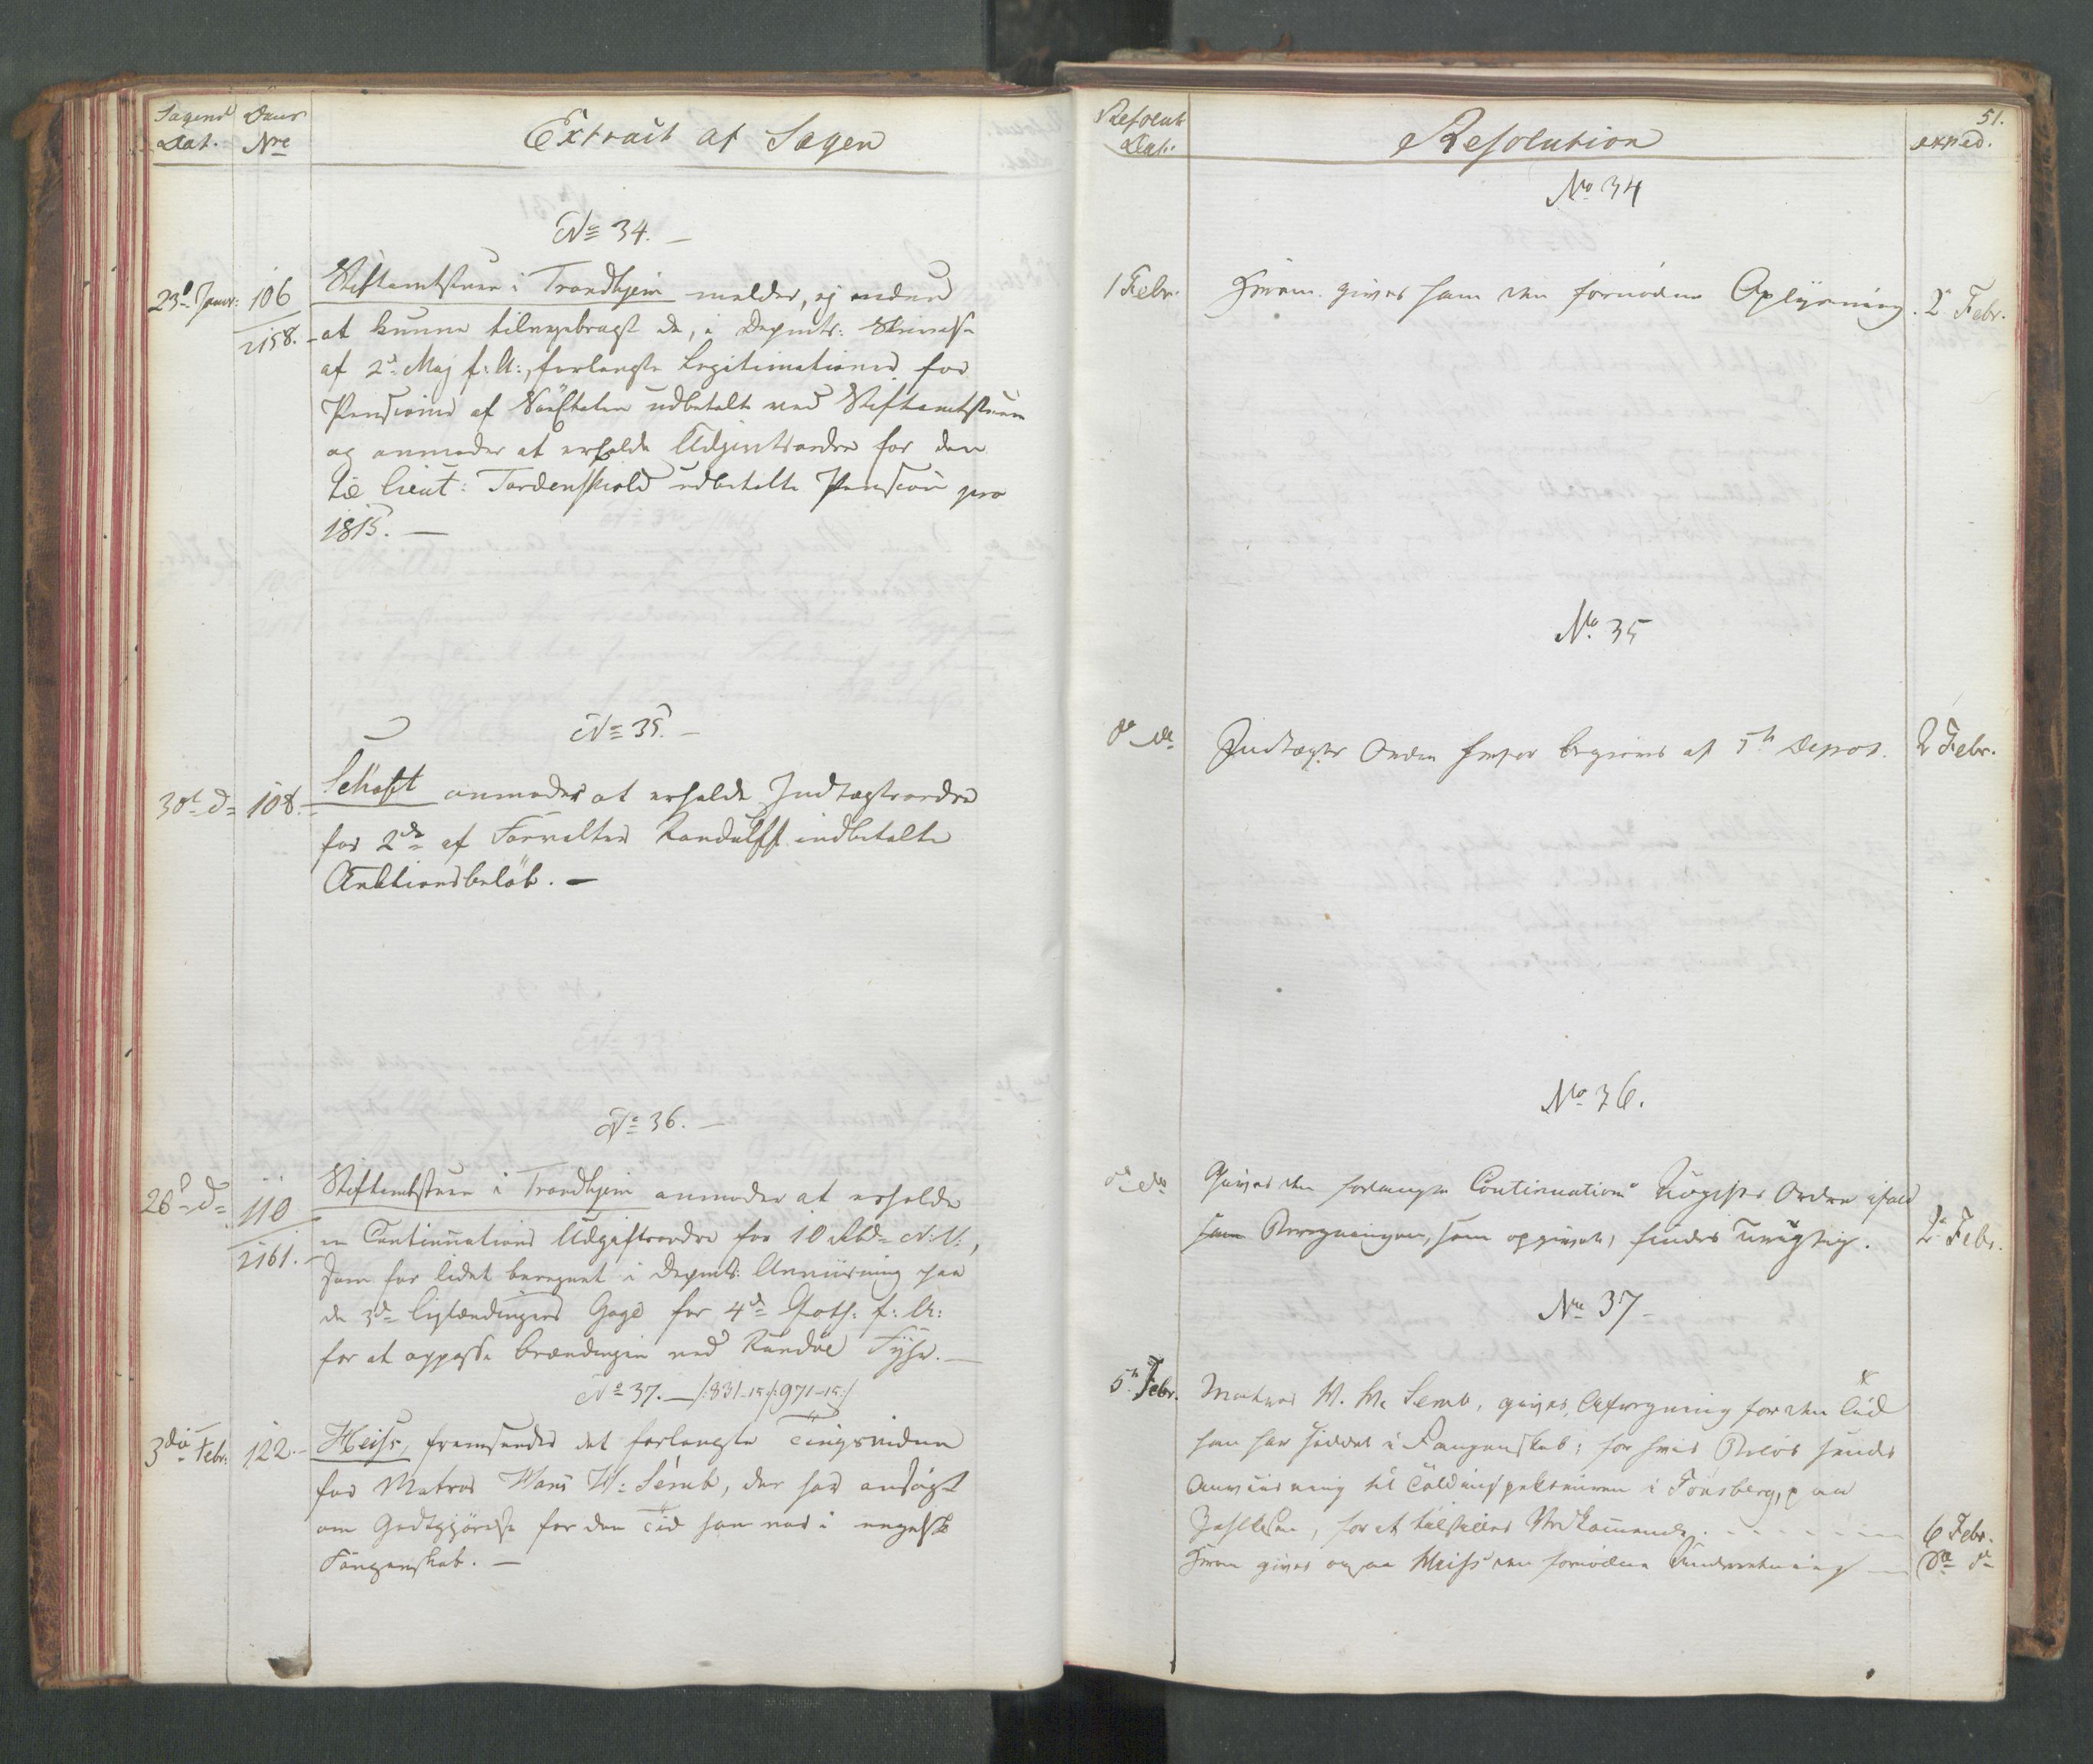 Sagens Dat.
Jour Nre
Extract af Sagen
No 34. —
23d Janr:
106
2158.
Stiftamtstuen i Trondhjem melder, ej endnu
at kunne tilvejebragt de, i Depmts: Skrivelse
af 2d Maj f: A:, forlangte Legitimationer for
Pensioner af Söeetaten udbetalt ved Stiftamtstuen
og anmoder at erholde Udgivtsordre for den
til Lieut: Tordenskiold udbetalte Pension pro
1815. —
No 35. —
30te do
108.
Schøft anmoder at erholde Indtægtsordre
for 2de af Forvalter Randulff indbetalte
Auktionsbeløb. —
No 36. —
26d do
110
2161.
Stiftamtstuen i Trondhjem anmoder at erholde
en Continuations Udgiftsordre for 10 Rbd N: V:,
som for lidet beregnet i Depmts: Anviisning paa
de 3de Gage for 4de f: A:
for at oppasse Brændingen ved Fyhr. —
No 37. — /:831-15:/:971-15:/
3die Febr:
122. —
Heiss, fremsender det forlangte Tingsvidne
for Matros Hans W: Semb, der har ansögt
om Godtgjörelse for den Tid han var i engelsk
Fangenskab. —
51.
Resolut: Dat:
Resolution
exped.
No 34
1 Febr.
Herom gives ham den fornødne Oplysning.
2 Febr.
No. 35
do do
Indtægts Ordre herfor begjeres af 5te Depart.
2 Febr.
No. 36.
do do
Gives den forlangte Continuations Udgifts Ordre ifald
Beregningen, som opgivet, findes rigtig.
2 Febr.
No 37 —
5te Febr.
Matros H. W. Semb, gives Afregning for den Tid
han har siddet i Fangenskab; for hvis Beløb sendes
Anviisning til Toldinspekteuren i Tönsberg, paa
Zahlkassen, for at tilstilles Vedkommende. - - - - - -
6 Febr.
Herom gives ogsaa Heiss den fornødne Underretning —
do do